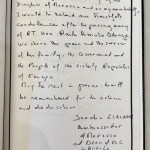 Kingdom of Morocco and on my own behalf,
I would to extend our heartfelt
Condolences after the passing away
of RT HON. Raila Amolo Odinga
We share the grief and the sorrow
of his family, the Government and
the People of the sisterly Republic of
Kenya
May his soul in peace. will
be remembered for his actions
and dedication
Ambassador
of Morocco